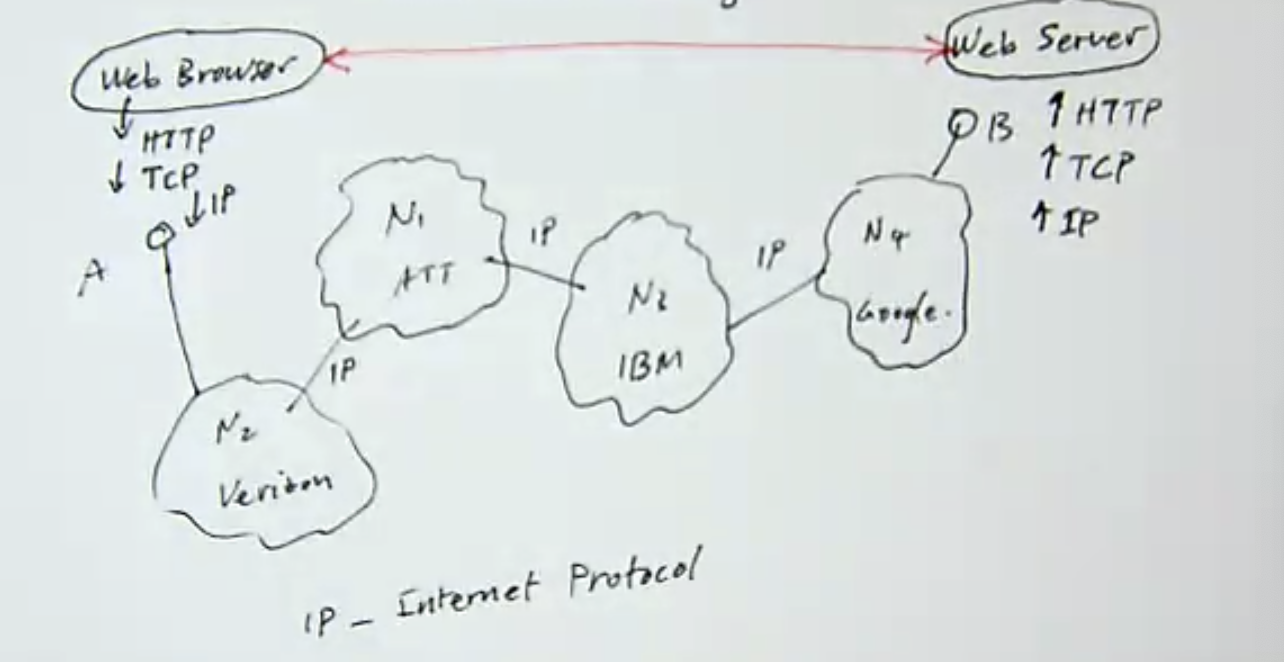 Web Browser
Web Server
HTTP
TCP
IP
A
B
HTTP
TCP
IP
N1
ATT
IP
N2
IBM
IP
N4
Google.
IP
N2
Verizon
IP - Internet Protocol